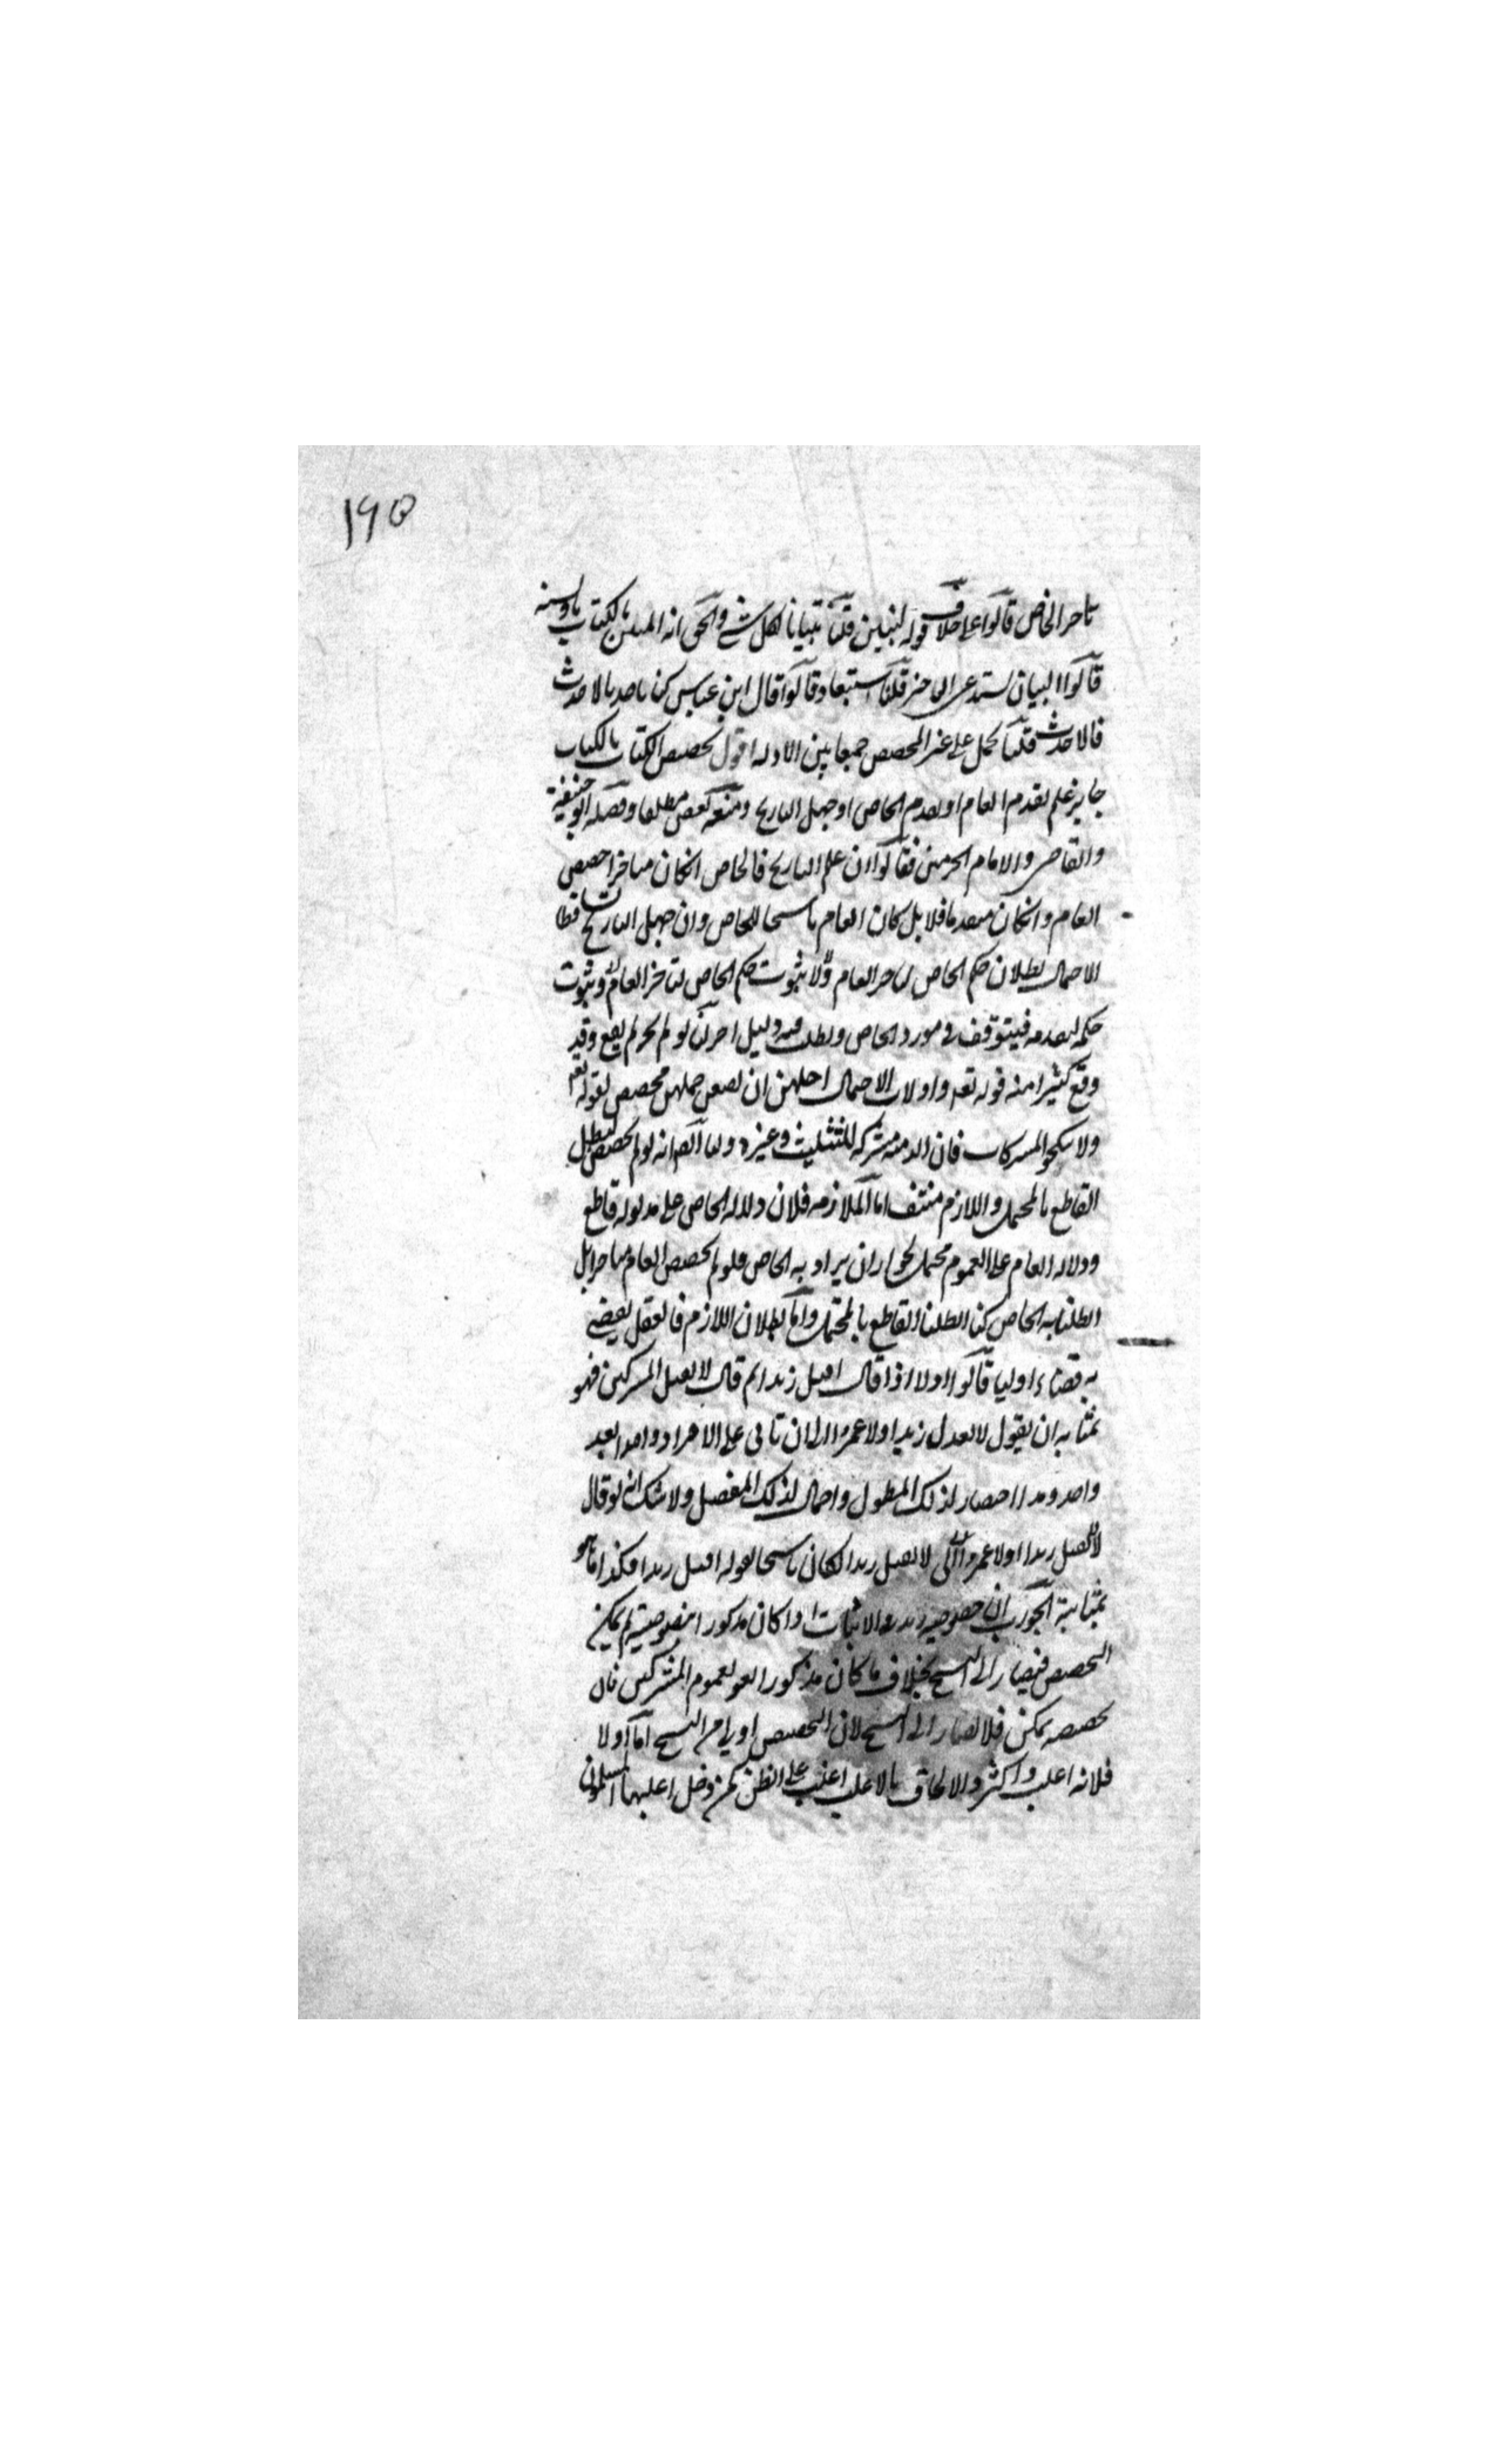 ١٩٥
تاخر الخاص قالوا على خلاف قوله لتبين قلنا تبيانا لكل شى والحق انه المبين بالكتاب وبالسنة
قالوا البيان يستدعى التاخر قلنا استبعاد قالوا قال ابن عباس كنا ناخذ بالاحدث
فالاحدث قلنا يحمل على غير المخصص جمعا بين الادله اقول تخصيص الكتاب بالكتاب
جايز علم تقدم العام او تقدم الخاص او جهل التاريخ ومنعه بعض مطلقا وفصله ابو حنيفة
والقاضى والامام الحرمين فقالوا ان علم التاريخ فالخاص انكان متاخرا خصص
العام وانكان متقدما فلا بل كان العام ناسخا للخاص وان جهل التاريخ تساقطا
الاحتمال بطلان حكم الخاص لتاخر العام ولا ثبوت حكم الخاص لتاخر العام وثبوت
حكمه لتقدمه فيتوقف فى مورد الخاص ويطلب فيه دليل اخر لنا لو لم يجز لم يقع وقد
وقع كثيرا منه قوله تعم واولات الاحمال اجلهن ان يضعن حملهن مخصص لقوله تعم
ولا تنكحوا المشركات فان الذميه مشركه للتثليث وغيره ولنا ايضا انه لو لم يخصص لبطل
القاطع بالمحتمل واللازم منتف اما الملازمه فلان دلالة الخاص على مدلوله قاطع
ودلاله العام على العموم محتمل لجواز ان يراد به الخاص فلو لم يخصص العام متاخرا بل
ابطلنا به الخاص كنا ابطلنا القاطع بالمحتمل واما بطلان اللازم فالعقل يقضى
به قضاء اوليا قالوا اولا اذا قال اقتل زيدا ثم قال لا تقتل المشركين فهو
بمثابه ان يقول لا تقتل زيدا ولا عمروا الى ان تاتى على الافراد واحدا بعد
واحد وهذا اختصار لذلك المطول واجمال لذلك المفصل ولا شك انه لو قال
لا تقتل زيدا ولا عمروا الى لا تقتل زيدا لكان ناسخا لقوله اقتل زيدا فكذا ما هو
بمثابتة الجواب ان خصوصيه زيد والاثبات اذا كان مذكورا بخصوصيته لم يمكن
التخصيص فيصار الى النسخ بخلاف ما كان مذكورا بعموم المشركين فان
تخصيصه يمكن فلا يصار الى النسخ لان التخصيص اولى من النسخ اما اولا
فلانه اغلب واكثر والالحاق بالاغلب اغلب على الظن كمن دخل اغلبها المسلمون